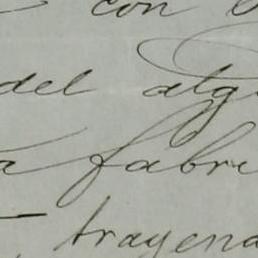 con
del alg
a fabri
trayend